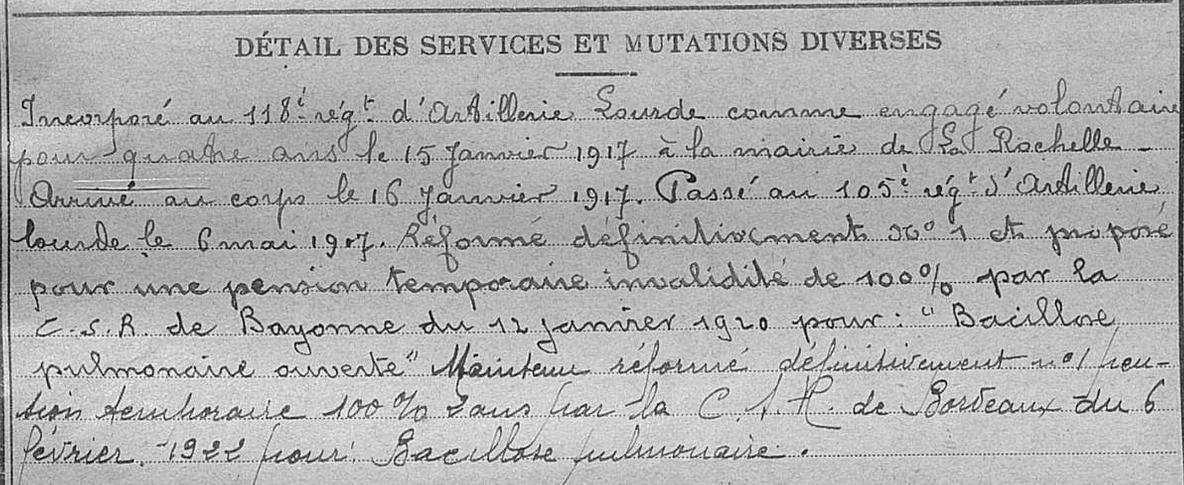 DÉTAIL DES SERVICES ET MUTATIONS DIVERSES
Incorporé au 118è régt d'Artillerie Lourde comme engagé volontaire
pour quatre ans le 15 Janvier 1917 à la mairie de La Rochelle -
Arrivé au corps le 16 Janvier 1917. Passé au 105è régt d'Artillerie
lourde le 6 mai 1917. Réformé définitivement No 1 et proposé
pour une pension temporaire invalidité de 100% par la
C.S.R. de Bayonne du 12 janvier 1920 pour : "Bacillose
pulmonaire ouverte" Maintenu réformé définitivement no 1 pen-
sion temporaire 100% 2 ans par la C.S.R. de Bordeaux du 6
février 1922 pour Bacillose pulmonaire.